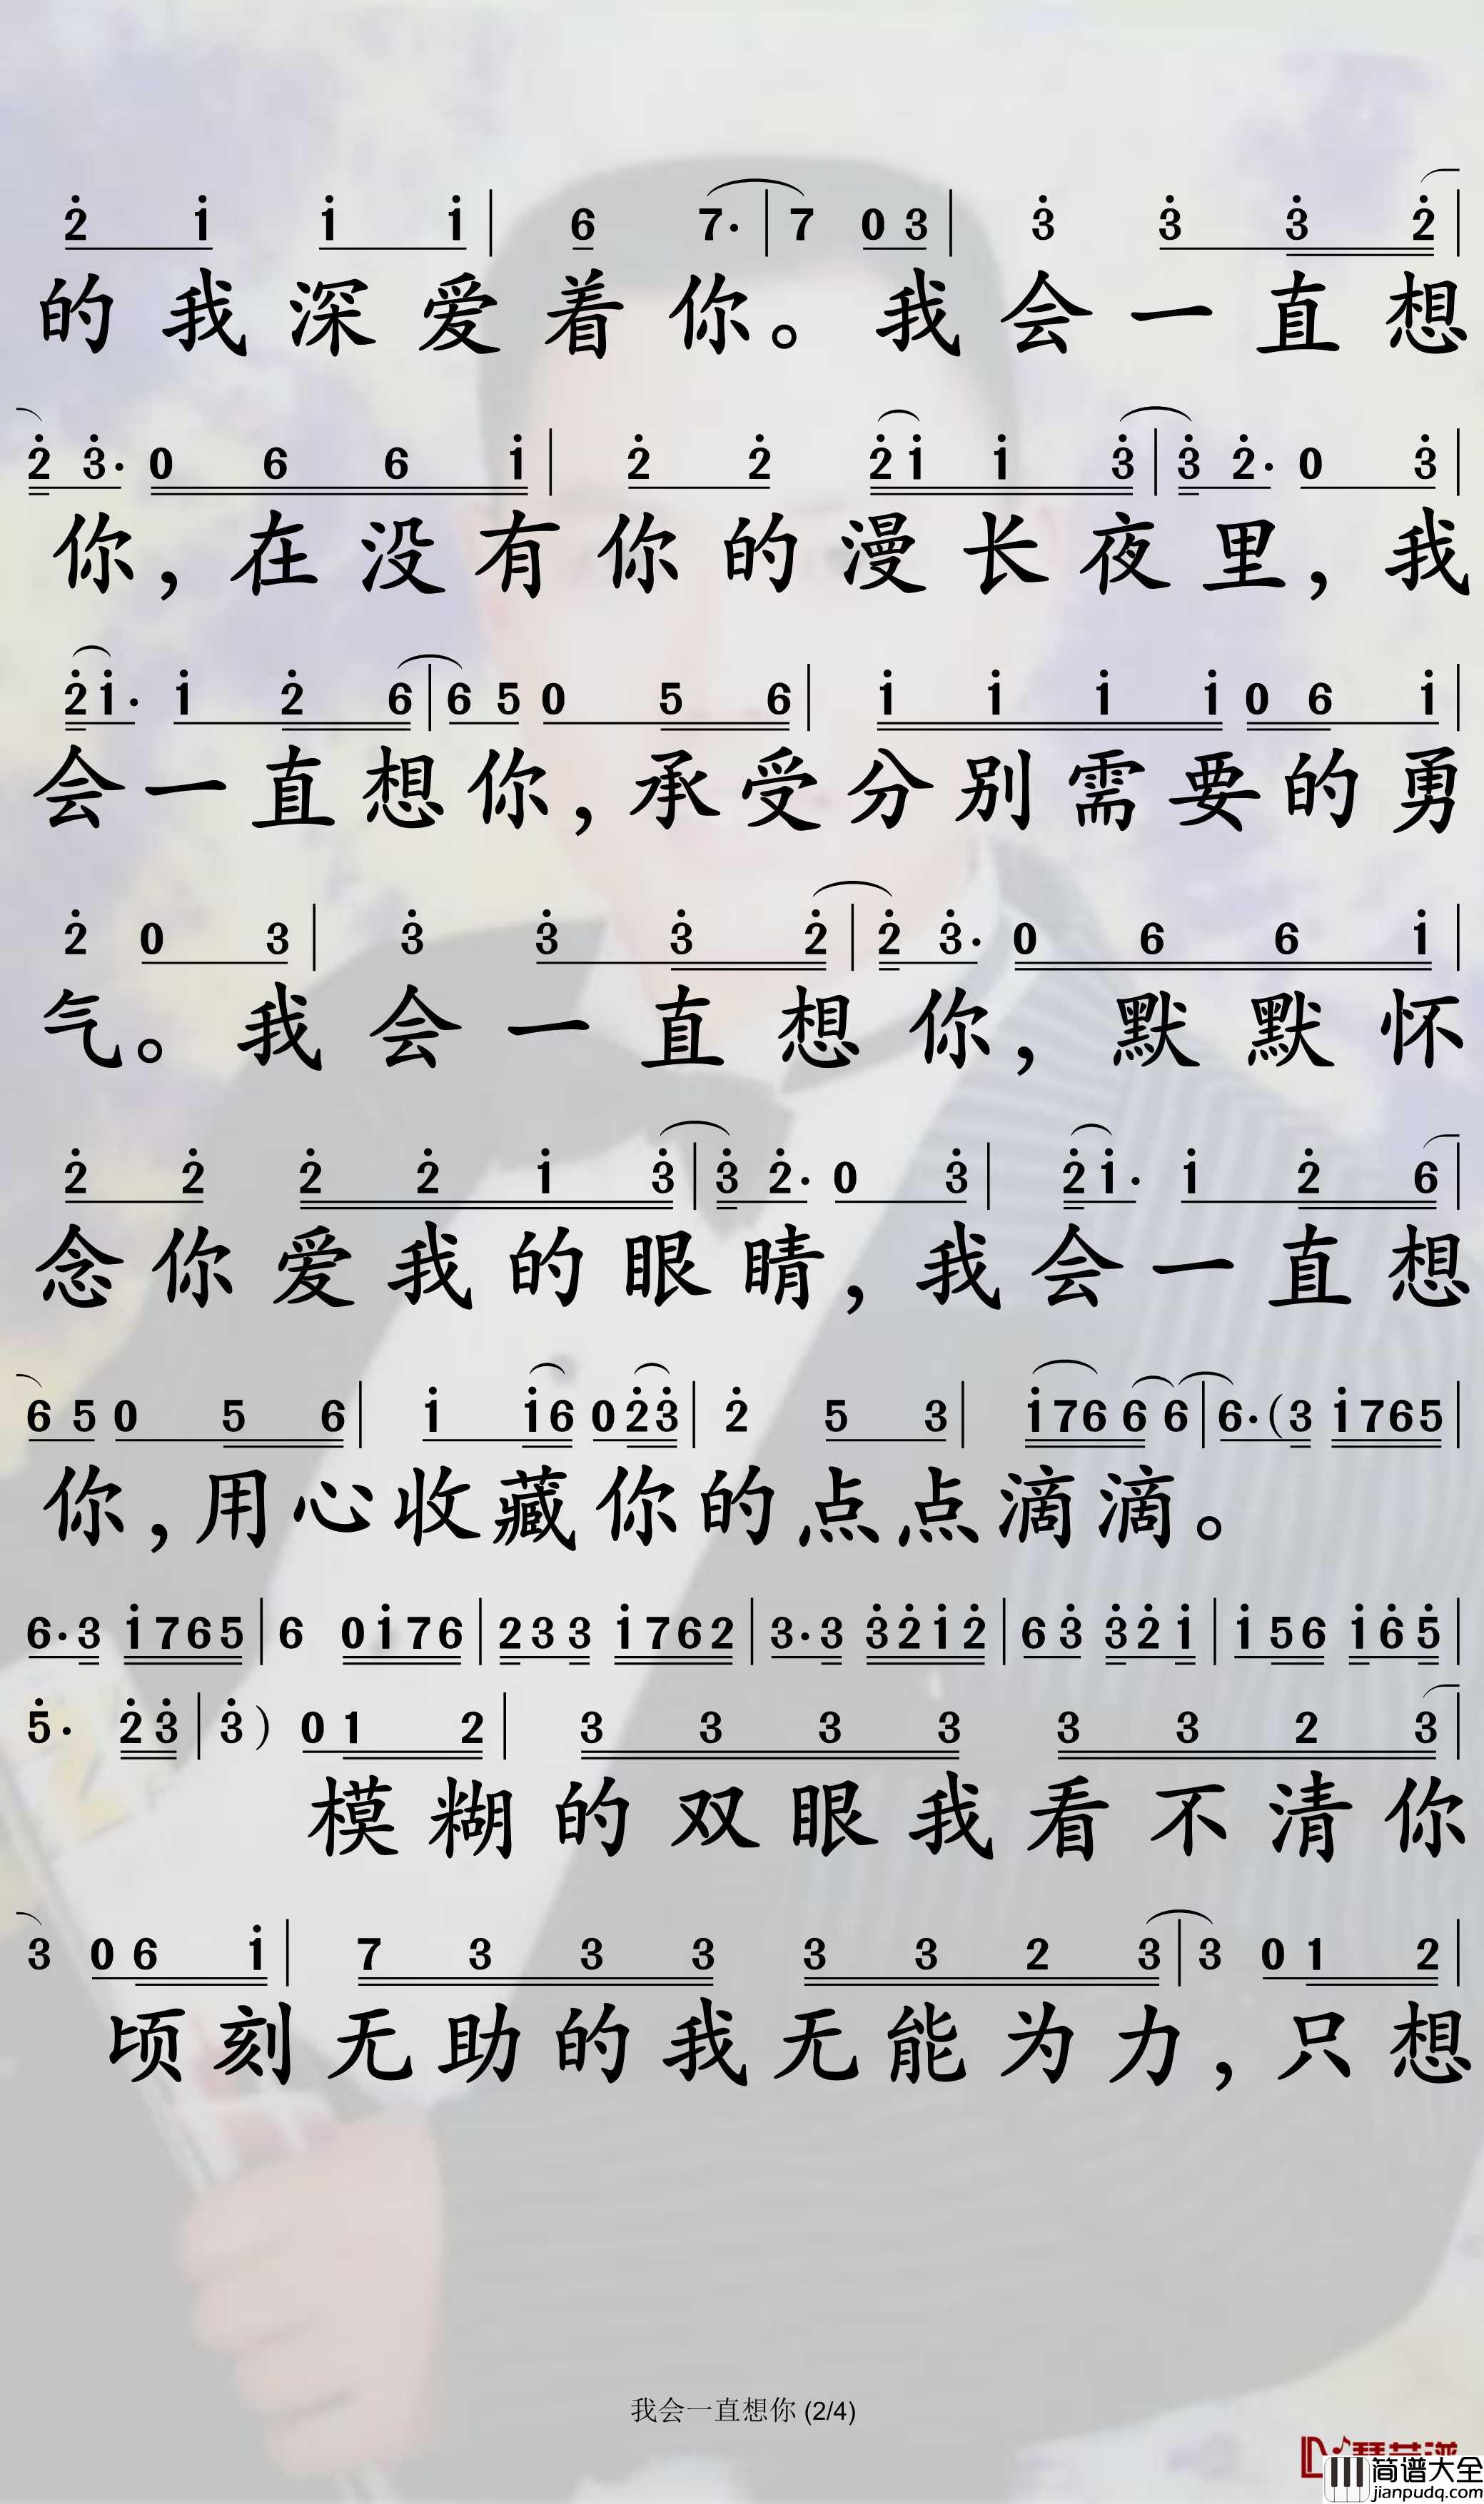 2̇ 1̇ 1̇ 1̇ | 6 7· | 7 0 3 | 3̇ 3̇ 3̇ 2̇ |
的我深爱着你。我会一直想
2̇ 3̇· 0 6 6 1̇ | 2̇ 2̇ 2̇ 1̇ 1̇ 3̇ | 3̇ 2̇· 0 3̇ |
你，在没有你的漫长夜里，我
2̇ 1̇· 1̇ 2̇ 6 | 6 5 0 5 6 | 1̇ 1̇ 1̇ 1̇ 0 6 1̇ |
会一直想你，承受分别需要的勇
2̇ 0 3 | 3̇ 3̇ 3̇ 2̇ | 2̇ 3̇· 0 6 6 1̇ |
气。我会一直想你，默默怀
2̇ 2̇ 2̇ 2̇ 1̇ 3̇ | 3̇ 2̇· 0 3̇ | 2̇ 1̇· 1̇ 2̇ 6 |
念你爱我的眼睛，我会一直想
6 5 0 5 6 | 1̇ 1̇ 6 0 2̇ 3̇ | 2̇ 5 3 | 1̇ 7 6 6 6 | 6· (3 1̇ 7 6 5 |
你，用心收藏你的点点滴滴。
6· 3 1̇ 7 6 5 | 6 0 1̇ 7 6 | 2 3 3 1̇ 7 6 2 | 3· 3 3̇ 2̇ 1̇ 2̇ | 6 3̇ 3̇ 2̇ 1̇ | 1̇ 5 6 1̇ 6̇ 5̇ |
5̇· 2̇ 3̇ | 3̇ ) 0 1 2 | 3 3 3 3 3 3 2 3 |
模糊的双眼我看不清你
3 0 6 1̇ | 7 3 3 3 3 3 2 3 | 3 0 1 2 |
顷刻无助的我无能为力，只想
我会一直想你 (2/4)
简谱大全
jianpudq.com